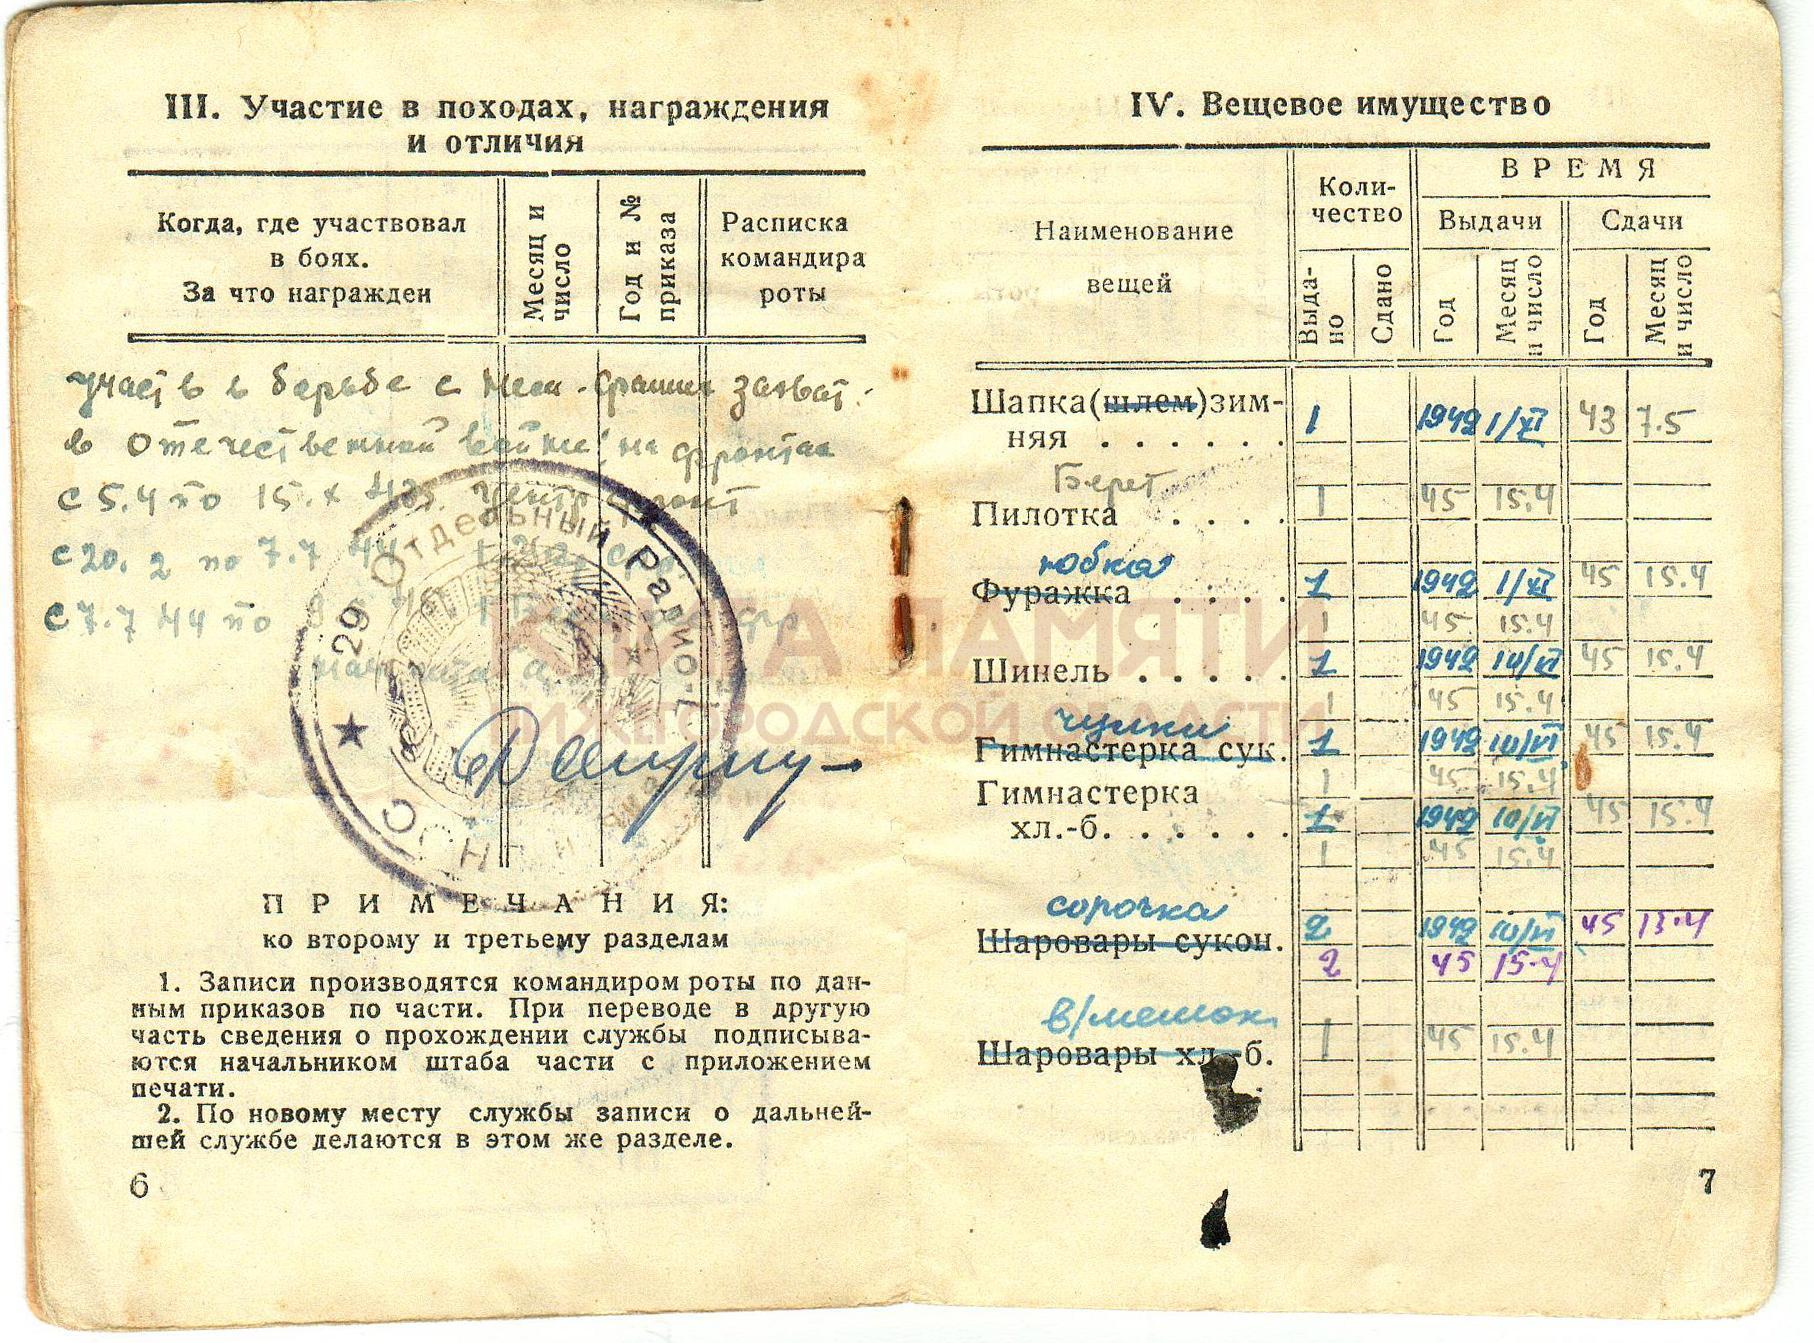 III. Участие в походах, награждения
и отличия
Когда, где участвовал
в боях.
За что награжден
Месяц и
число
Год и №
приказа
Расписка
командира
роты
в борьбе с
в отечественной войне на фронтах
с 5.4 по 15.х 43г. центр. фронт
с 20.2 по 7.7 44
с 7.7 44 по
29 Отдельный Радио
ВНОС
П Р И М Е Ч А Н И Я:
ко второму и третьему разделам
1. Записи производятся командиром роты по дан-
ным приказов по части. При переводе в другую
часть сведения о прохождении службы подписыва-
ются начальником штаба части с приложением
печати.
2. По новому месту службы записи о дальней-
шей службе делаются в этом же разделе.
6
КНИГА ПАМЯТИ
НИЖЕГОРОДСКОЙ ОБЛАСТИ
IV. Вещевое имущество
Наименование
вещей
Коли-
чество
В Р Е М Я
Выдачи
Сдачи
Выда-
но
Сдано
Год
Месяц
и число
Год
Месяц
и число
Шапка(шлем)зим-
няя . . . . . . 1 1942 1/XI 43 7.5
Берет
Пилотка . . . . 1 45 15.4
юбка
Фуражка . . . . 1 1942 1/XI 45 15.4
1 45 15.4
Шинель . . . . . 1 1942 10/VI 45 15.4
1 45 15.4
чулки
Гимнастерка сук. 1 1942 10/VI 45 15.4
1 45 15.4
Гимнастерка
хл.-б. . . . . . 1 1942 10/VI 45 15.4
1 45 15.4
сорочка
Шаровары сукон. 2 1942 10/VI 45 15.4
2 45 15.4
в/мешок
Шаровары хл.-б. 1 45 15.4
7